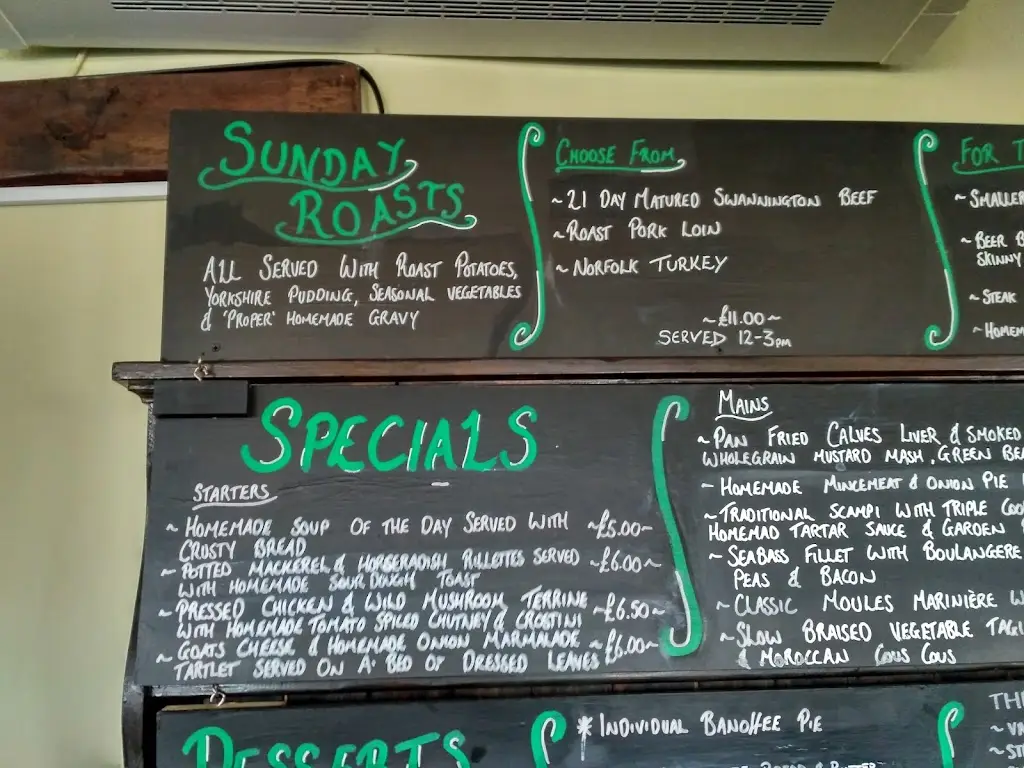 SUNDAY
ROASTS
ALL SERVED WITH ROAST POTATOES,
YORKSHIRE PUDDING, SEASONAL VEGETABLES
& 'PROPER' HOMEMADE GRAVY
CHOOSE FROM
~ 21 DAY MATURED SWANNINGTON BEEF
~ ROAST PORK LOIN
~ NORFOLK TURKEY
~£11.00~
SERVED 12-3PM
FOR T
~ SMALLER
~ BEER B
SKINNY
~ STEAK
~ HOMEM
SPECIALS
STARTERS
~ HOMEMADE SOUP OF THE DAY SERVED WITH ~£5.00~
CRUSTY BREAD
~ POTTED MACKEREL & HORSERADISH RILLETTES SERVED ~£6.00~
WITH HOMEMADE SOUR DOUGH TOAST
~ PRESSED CHICKEN & WILD MUSHROOM TERRINE ~£6.50~
WITH HOMEMADE TOMATO SPICED CHUTNEY & CROSTINI
~ GOATS CHEESE & HOMEMADE ONION MARMALADE ~£6.00~
TARTLET SERVED ON A BED OF DRESSED LEAVES
MAINS
~ PAN FRIED CALVES LIVER & SMOKED
WHOLEGRAIN MUSTARD MASH, GREEN BEA
~ HOMEMADE MINCEMEAT & ONION PIE
~ TRADITIONAL SCAMPI WITH TRIPLE COO
HOMEMAD TARTAR SAUCE & GARDEN
~ SEABASS FILLET WITH BOULANGERE
PEAS & BACON
~ CLASSIC MOULES MARINIÈRE W
~ SLOW BRAISED VEGETABLE TAGI
& MOROCCAN COUS COUS
DESSERTS
* INDIVIDUAL BANOFFEE PIE
TH
~ VA
~ ST